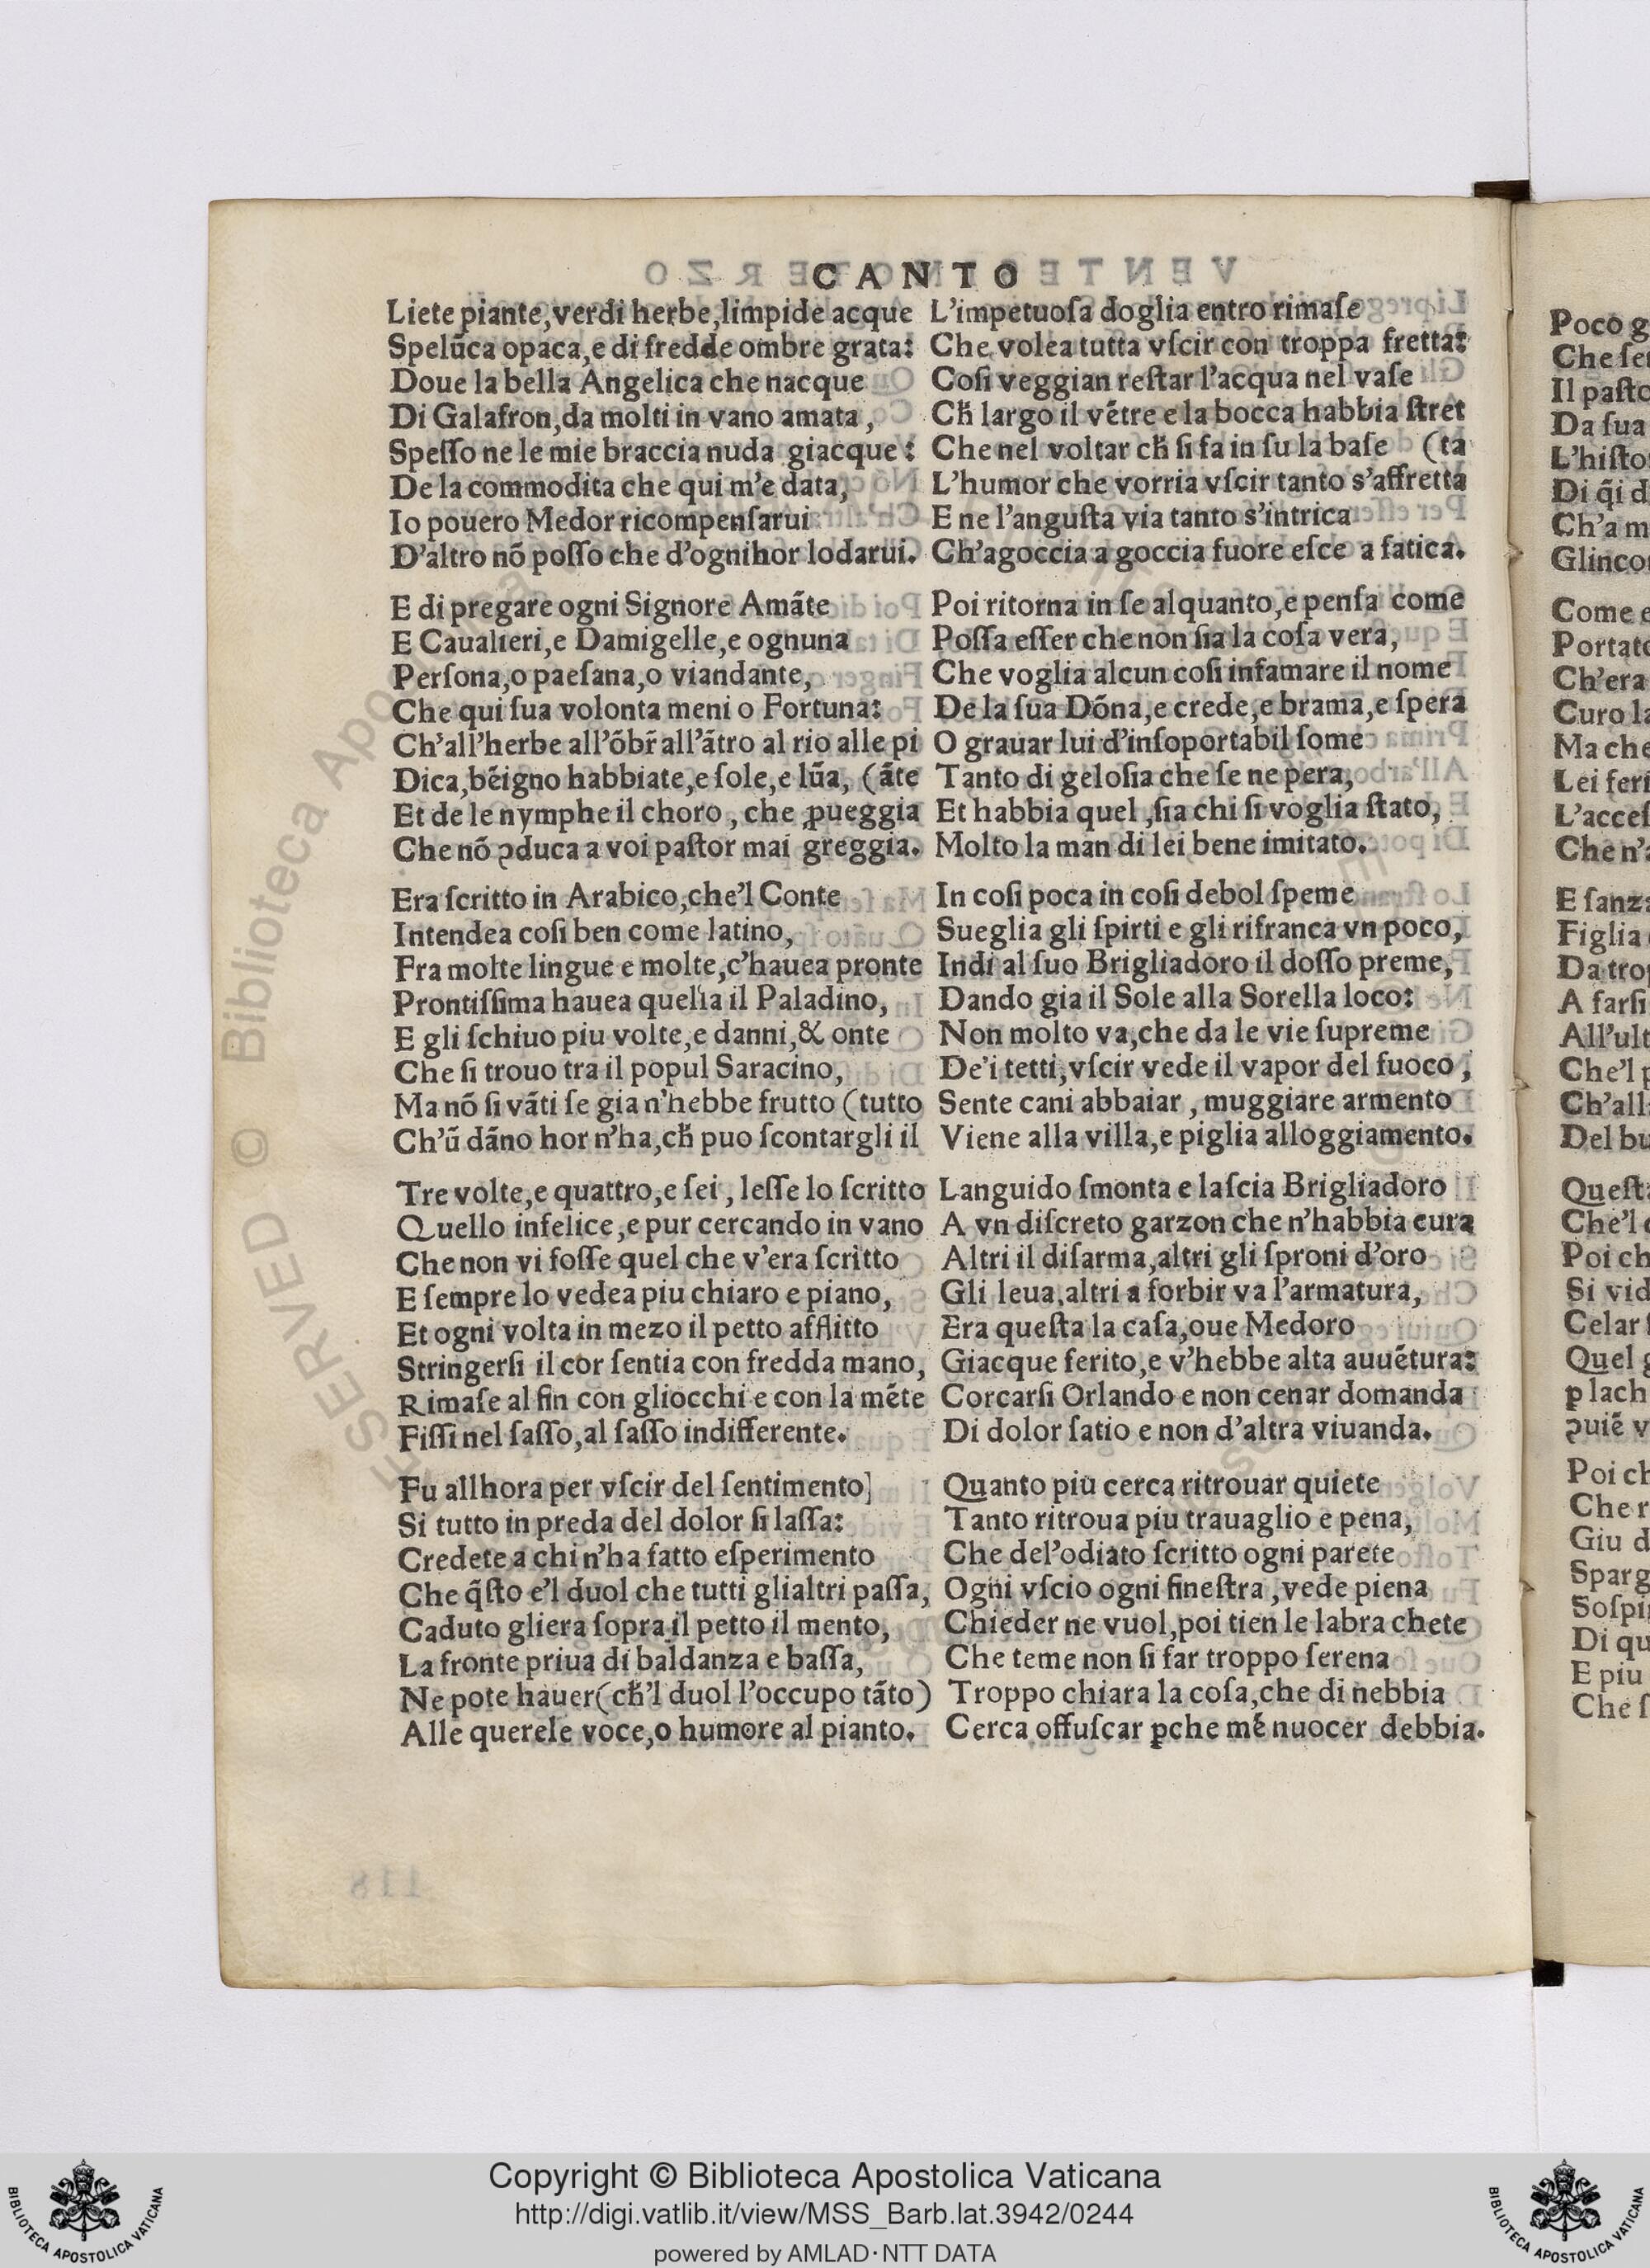 CANTO
Liete piante,verdi herbe,limpide acque
Spelũca opaca,e di fredde ombre grata:
Doue la bella Angelica che nacque
Di Galafron,da molti in vano amata,
Speſſo ne le mie braccia nuda giacque:
De la commodita che qui m'e data,
Io pouero Medor ricompenſarui
D'altro nõ poſſo che d'ognihor lodarui.
E di pregare ogni Signore Amãte
E Caualieri,e Damigelle,e ognuna
Perſona,o paeſana,o viandante,
Che qui ſua volonta meni o Fortuna:
Ch'all'herbe all'õbr̃ all'ãtro al rio alle pi
Dica,bẽigno habbiate,e ſole,e lũa, (ãte
Et de le nymphe il choro, che ꝓueggia
Che nõ ꝯduca a voi paſtor mai greggia.
Era ſcritto in Arabico,che'l Conte
Intendea coſi ben come latino,
Fra molte lingue e molte,c'hauea pronte
Prontiſſima hauea quella il Paladino,
E gli ſchiuo piu volte,e danni,& onte
Che ſi trouo tra il popul Saracino,
Ma nõ ſi vãti ſe gia n'hebbe frutto (tutto
Ch'ũ dãno hor n'ha,ch̃ puo ſcontargli il
Tre volte,e quattro,e ſei, leſſe lo ſcritto
Quello infelice,e pur cercando in vano
Che non vi foſſe quel che v'era ſcritto
E ſempre lo vedea piu chiaro e piano,
Et ogni volta in mezo il petto afflitto
Stringerſi il cor ſentia con fredda mano,
Rimaſe al fin con gliocchi e con la mẽte
Fiſſi nel ſaſſo,al ſaſſo indifferente.
Fu allhora per vſcir del ſentimento]
Si tutto in preda del dolor ſi laſſa:
Credete a chi n'ha fatto eſperimento
Che q̃ſto e'l duol che tutti glialtri paſſa,
Caduto gliera ſopra il petto il mento,
La fronte priua di baldanza e baſſa,
Ne pote hauer(ch̃'l duol l'occupo tãto)
Alle querele voce,o humore al pianto.
L'impetuoſa doglia entro rimaſe
Che volea tutta vſcir con troppa fretta:
Coſi veggian reſtar l'acqua nel vaſe
Ch̃ largo il vẽtre e la bocca habbia ſtret
Che nel voltar ch̃ ſi fa in ſu la baſe (ta
L'humor che vorria vſcir tanto s'affretta
E ne l'anguſta via tanto s'intrica
Ch'agoccia a goccia fuore eſce a fatica.
Poi ritorna in ſe alquanto,e penſa come
Poſſa eſſer che non ſia la coſa vera,
Che voglia alcun coſi infamare il nome
De la ſua Dõna,e crede,e brama,e ſpera
O grauar lui d'inſoportabil ſome
Tanto di geloſia che ſe ne pera,
Et habbia quel ,ſia chi ſi voglia ſtato,
Molto la man di lei bene imitato.
In coſi poca in coſi debol ſpeme
Sueglia gli ſpirti e gli rifranca vn poco,
Indi al ſuo Brigliadoro il doſſo preme,
Dando gia il Sole alla Sorella loco:
Non molto va,che da le vie ſupreme
De'i tetti,vſcir vede il vapor del fuoco,
Sente cani abbaiar, muggiare armento
Viene alla villa,e piglia alloggiamento.
Languido ſmonta e laſcia Brigliadoro
A vn diſcreto garzon che n'habbia cura
Altri il diſarma,altri gli ſproni d'oro
Gli leua,altri a forbir va l'armatura,
Era queſta la caſa,oue Medoro
Giacque ferito,e v'hebbe alta auuẽtura:
Corcarſi Orlando e non cenar domanda
Di dolor ſatio e non d'altra viuanda.
Quanto piu cerca ritrouar quiete
Tanto ritroua piu trauaglio e pena,
Che del'odiato ſcritto ogni parete
Ogni vſcio ogni fineſtra,vede piena
Chieder ne vuol,poi tien le labra chete
Che teme non ſi far troppo ſerena
Troppo chiara la coſa,che di nebbia
Cerca offuſcar ꝑche mẽ nuocer debbia.
Poco g
Che ſe
Il paſto
Da ſua
L'hiſto
Di q̃i d
Ch'a m
Glinco
Come e
Portato
Ch'era
Curo la
Ma che
Lei feri
L'acceſ
Che n'a
E ſanza
Figlia
Da trop
A farſi
All'ult
Che'l p
Ch'all
Del bu
Queſta
Che'l
Poi ch
Si vid
Celar
Quel g
ꝑ lach
ꝯuiẽ v
Poi ch
Che r
Giu d
Sparg
Soſpi
Di qu
E piu
Che ſ
118
RESERVED © Biblioteca Apo
Copyright © Biblioteca Apostolica Vaticana
http://digi.vatlib.it/view/MSS_Barb.lat.3942/0244
powered by AMLAD·NTT DATA
BIBLIOTECA APOSTOLICA VATICANA
BIBLIOTECA APOSTOLICA VATICANA